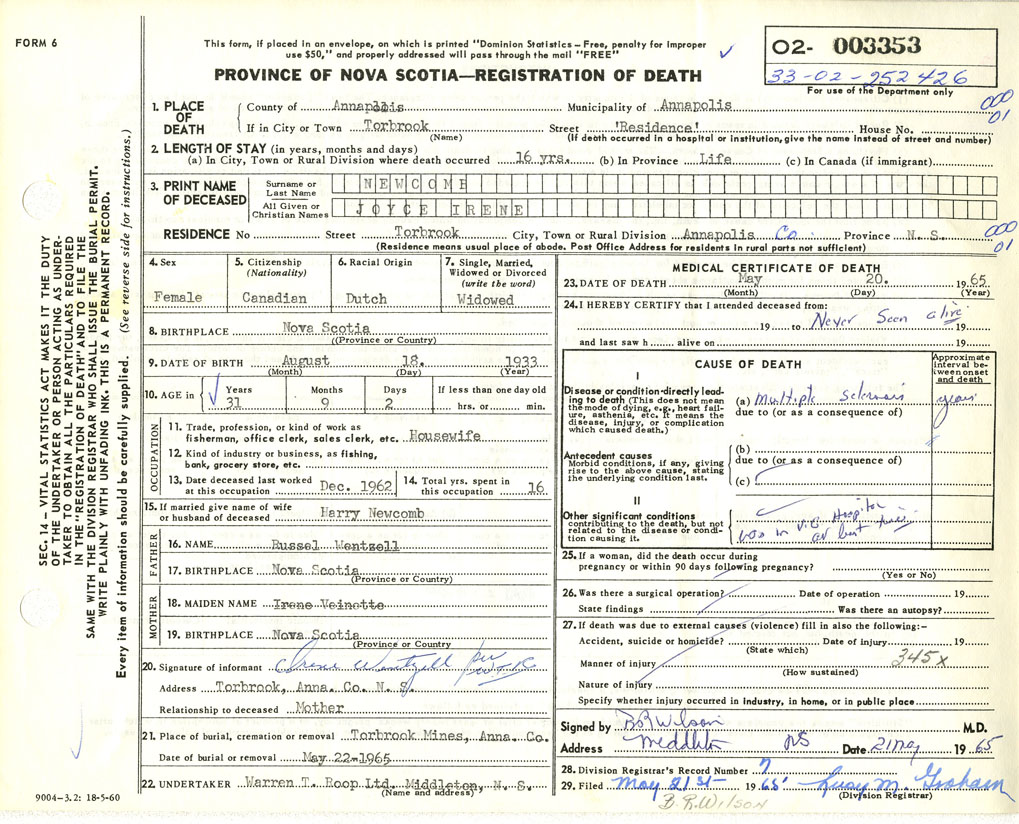 FORM 6
This form, if placed in an envelope, on which is printed "Dominion Statistics – Free, penalty for improper
use $50," and properly addressed will pass through the mail "FREE"
02- 003353
33-02-252426
For use of the Department only
PROVINCE OF NOVA SCOTIA—REGISTRATION OF DEATH
SEC. 14 – VITAL STATISTICS ACT MAKES IT THE DUTY
OF THE UNDERTAKER OR PERSON ACTING AS UNDER-
TAKER TO OBTAIN ALL THE PARTICULARS REQUIRED
IN THE "REGISTRATION OF DEATH" AND TO FILE THE
SAME WITH THE DIVISION REGISTRAR WHO SHALL ISSUE THE BURIAL PERMIT.
WRITE PLAINLY WITH UNFADING INK. THIS IS A PERMANENT RECORD.
Every item of information should be carefully supplied. (See reverse side for instructions.)
1. PLACE OF DEATH
County of Annapolis Municipality of Annapolis
000
01
If in City or Town Torbrook Street 'Residence' House No.
(Name) (If death occurred in a hospital or institution, give the name instead of street and number)
2. LENGTH OF STAY (in years, months and days)
(a) In City, Town or Rural Division where death occurred 16 yrs. (b) In Province Life (c) In Canada (if immigrant)
3. PRINT NAME OF DECEASED
Surname or Last Name NEWCOMB
All Given or Christian Names JOYCE IRENE
RESIDENCE No Street Torbrook City, Town or Rural Division Annapolis Co. Province N. S.
000
01
(Residence means usual place of abode. Post Office Address for residents in rural parts not sufficient)
4. Sex
Female
5. Citizenship
(Nationality)
Canadian
6. Racial Origin
Dutch
7. Single, Married,
Widowed or Divorced
(write the word)
Widowed
8. BIRTHPLACE Nova Scotia
((Province or Country)
9. DATE OF BIRTH August 18. 1933
(Month) (Day) (Year)
10. AGE in
Years Months Days If less than one day old
31 9 2 hrs. or min.
OCCUPATION
11. Trade, profession, or kind of work as
fisherman, office clerk, sales clerk, etc. Housewife
12. Kind of industry or business, as fishing,
bank, grocery store, etc.
13. Date deceased last worked
at this occupation Dec. 1962
14. Total yrs. spent in
this occupation 16
15. If married give name of wife
or husband of deceased Harry Newcomb
FATHER
16. NAME Russel Wentzell
17. BIRTHPLACE Nova Scotia
(Province or Country)
MOTHER
18. MAIDEN NAME Irene Veinotte
19. BIRTHPLACE Nova Scotia
(Province or Country
20. Signature of informant Irene Wentzell per
Address Torbrook, Anna. Co. N. S.
Relationship to deceased Mother
21. Place of burial, cremation or removal Torbrook Mines, Anna. Co.
Date of burial or removal May 22-1965
22. UNDERTAKER Warren T. Roop Ltd. Middleton, N. S.
(Name and address)
9004-3.2: 18-5-60
MEDICAL CERTIFICATE OF DEATH
23. DATE OF DEATH May 20. 1965
(Month) (Day) (Year)
24. I HEREBY CERTIFY that I attended deceased from:
19 to Never Seen alive 19
and last saw h alive on 19
CAUSE OF DEATH
Approximate
interval be-
tween onset
and death
I
Disease or condition directly lead-
ing to death (This does not mean
the mode of dying, e.g., heart fail-
ure, asthenia, etc. It means the
disease, injury, or complication
which caused death.)
(a) Multiple Sclerosis years
due to (or as a consequence of)
Antecedent causes
Morbid conditions, if any, giving
rise to the above cause, stating
the underlying condition last.
(b)
due to (or as a consequence of)
(c)
II
Other significant conditions
contributing to the death, but not
related to the disease or condi-
tion causing it.
was in V.G. Hospital
25. If a woman, did the death occur during
pregnancy or within 90 days following pregnancy?
(Yes or No)
26. Was there a surgical operation? Date of operation 19
State findings Was there an autopsy?
27. If death was due to external causes (violence) fill in also the following:–
Accident, suicide or homicide? Date of injury 19
(State which)
345x
Manner of injury
(How sustained)
Nature of injury
Specify whether injury occurred in industry, in home, or in public place
Signed by B R Wilson M.D.
Address Middleton NS Date 21 May 1965
28. Division Registrar's Record Number 7
29. Filed May 21st 1965 Lucy M. Graham
(Division Registrar)
B. R. WILSON